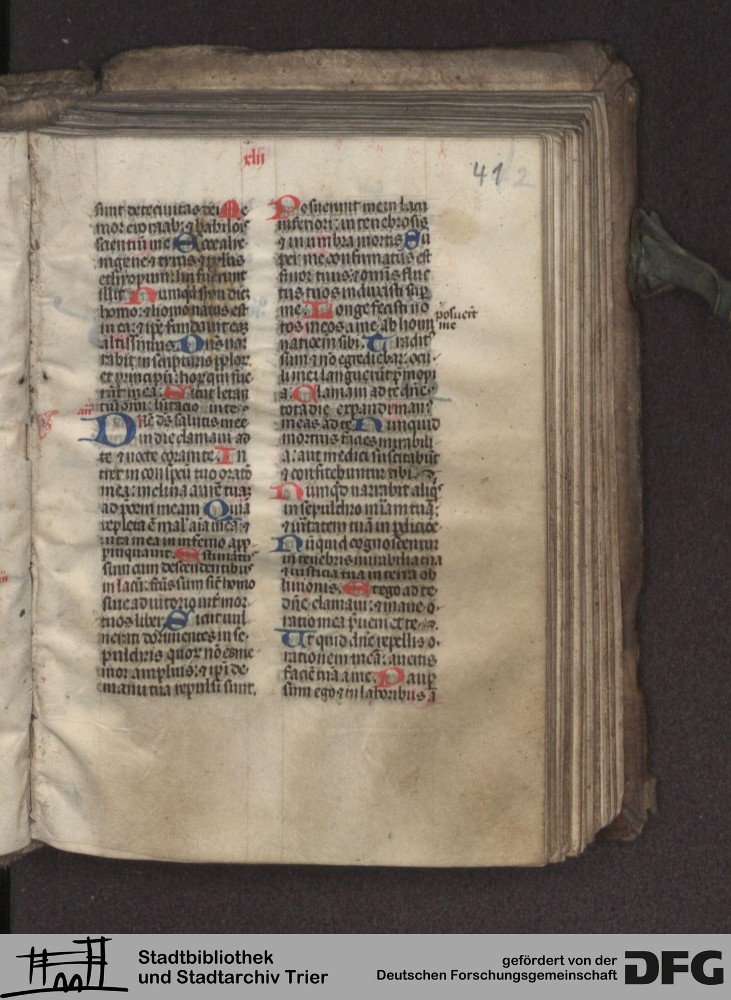 xlii
41 2
sunt de te civitas dei Me
mor ero raab: & babilois
scientiū me Ecce alie
nigene & tyrus & pplus
ethyopum: hii fuerunt
illic Numquid syon dicet
homo: & homo natus est
in ea: & ipse fundavit eaz
altissimus Dn̄s nar
rabit in scripturis pplor̄.
et principū: hor̄ qui fue
rūt in ea. Sicut letan
tiū om̄: hītatio in te
Dn̄e ds salutis mee
in die clamavi ad
te & nocte coram te. In
tret in conspcū tuo orato
mea: inclina aurē tuaz
ad p̄cem meam Quia
repleta ē mal' aīa mea: &
vita mea in inferno app
pinquavit. Estimatus
sum cum descendentibus
in lacū: fc̄us sum sic̄ homo
sine adiutorio int̄ mor
tuos liber Sicut vul
nerati dormientes in se
pulchris quor̄ nō es me
mor amplius: & ip̄i de
manu tua repulsi sunt.
Posuerunt me in lacu
inferiori: in tenebrosis
& in umbra mortis Su
per me confirmatus est
furor tuus: & omnis fluc
tus tuos induxisti sup
me. Longe fecisti no
tos meos a me: ab homi
natioēm sibi. Tradit'
sum & nō egrediebar: ocu
li mei languerūt p̄ inopi
a. Clamavi ad te dn̄e
tota die expandi man'
meas ad te Numquid
mortuis facies mirabili
a: aut medici suscitabūt
& confitebuntur tibi.
Numqd narrabit aliqs
in sepulchro mīam tuā:
& vīitatem tuā in pdicōe
Nūquid cognoscentur
in tenebris mirabilia tua
& iusticia tua in terra ob
livionis. Et ego ad te
dn̄e clamavi: & mane o
ratio mea p̄veniet te.
Ut quid dn̄e repellis o
rationem meā: avertis
faciē tuā a me. Paup
sum ego & in laboribus a
posuerūt
me
Stadtbibliothek
und Stadtarchiv Trier
gefördert von der
Deutschen Forschungsgemeinschaft
DFG